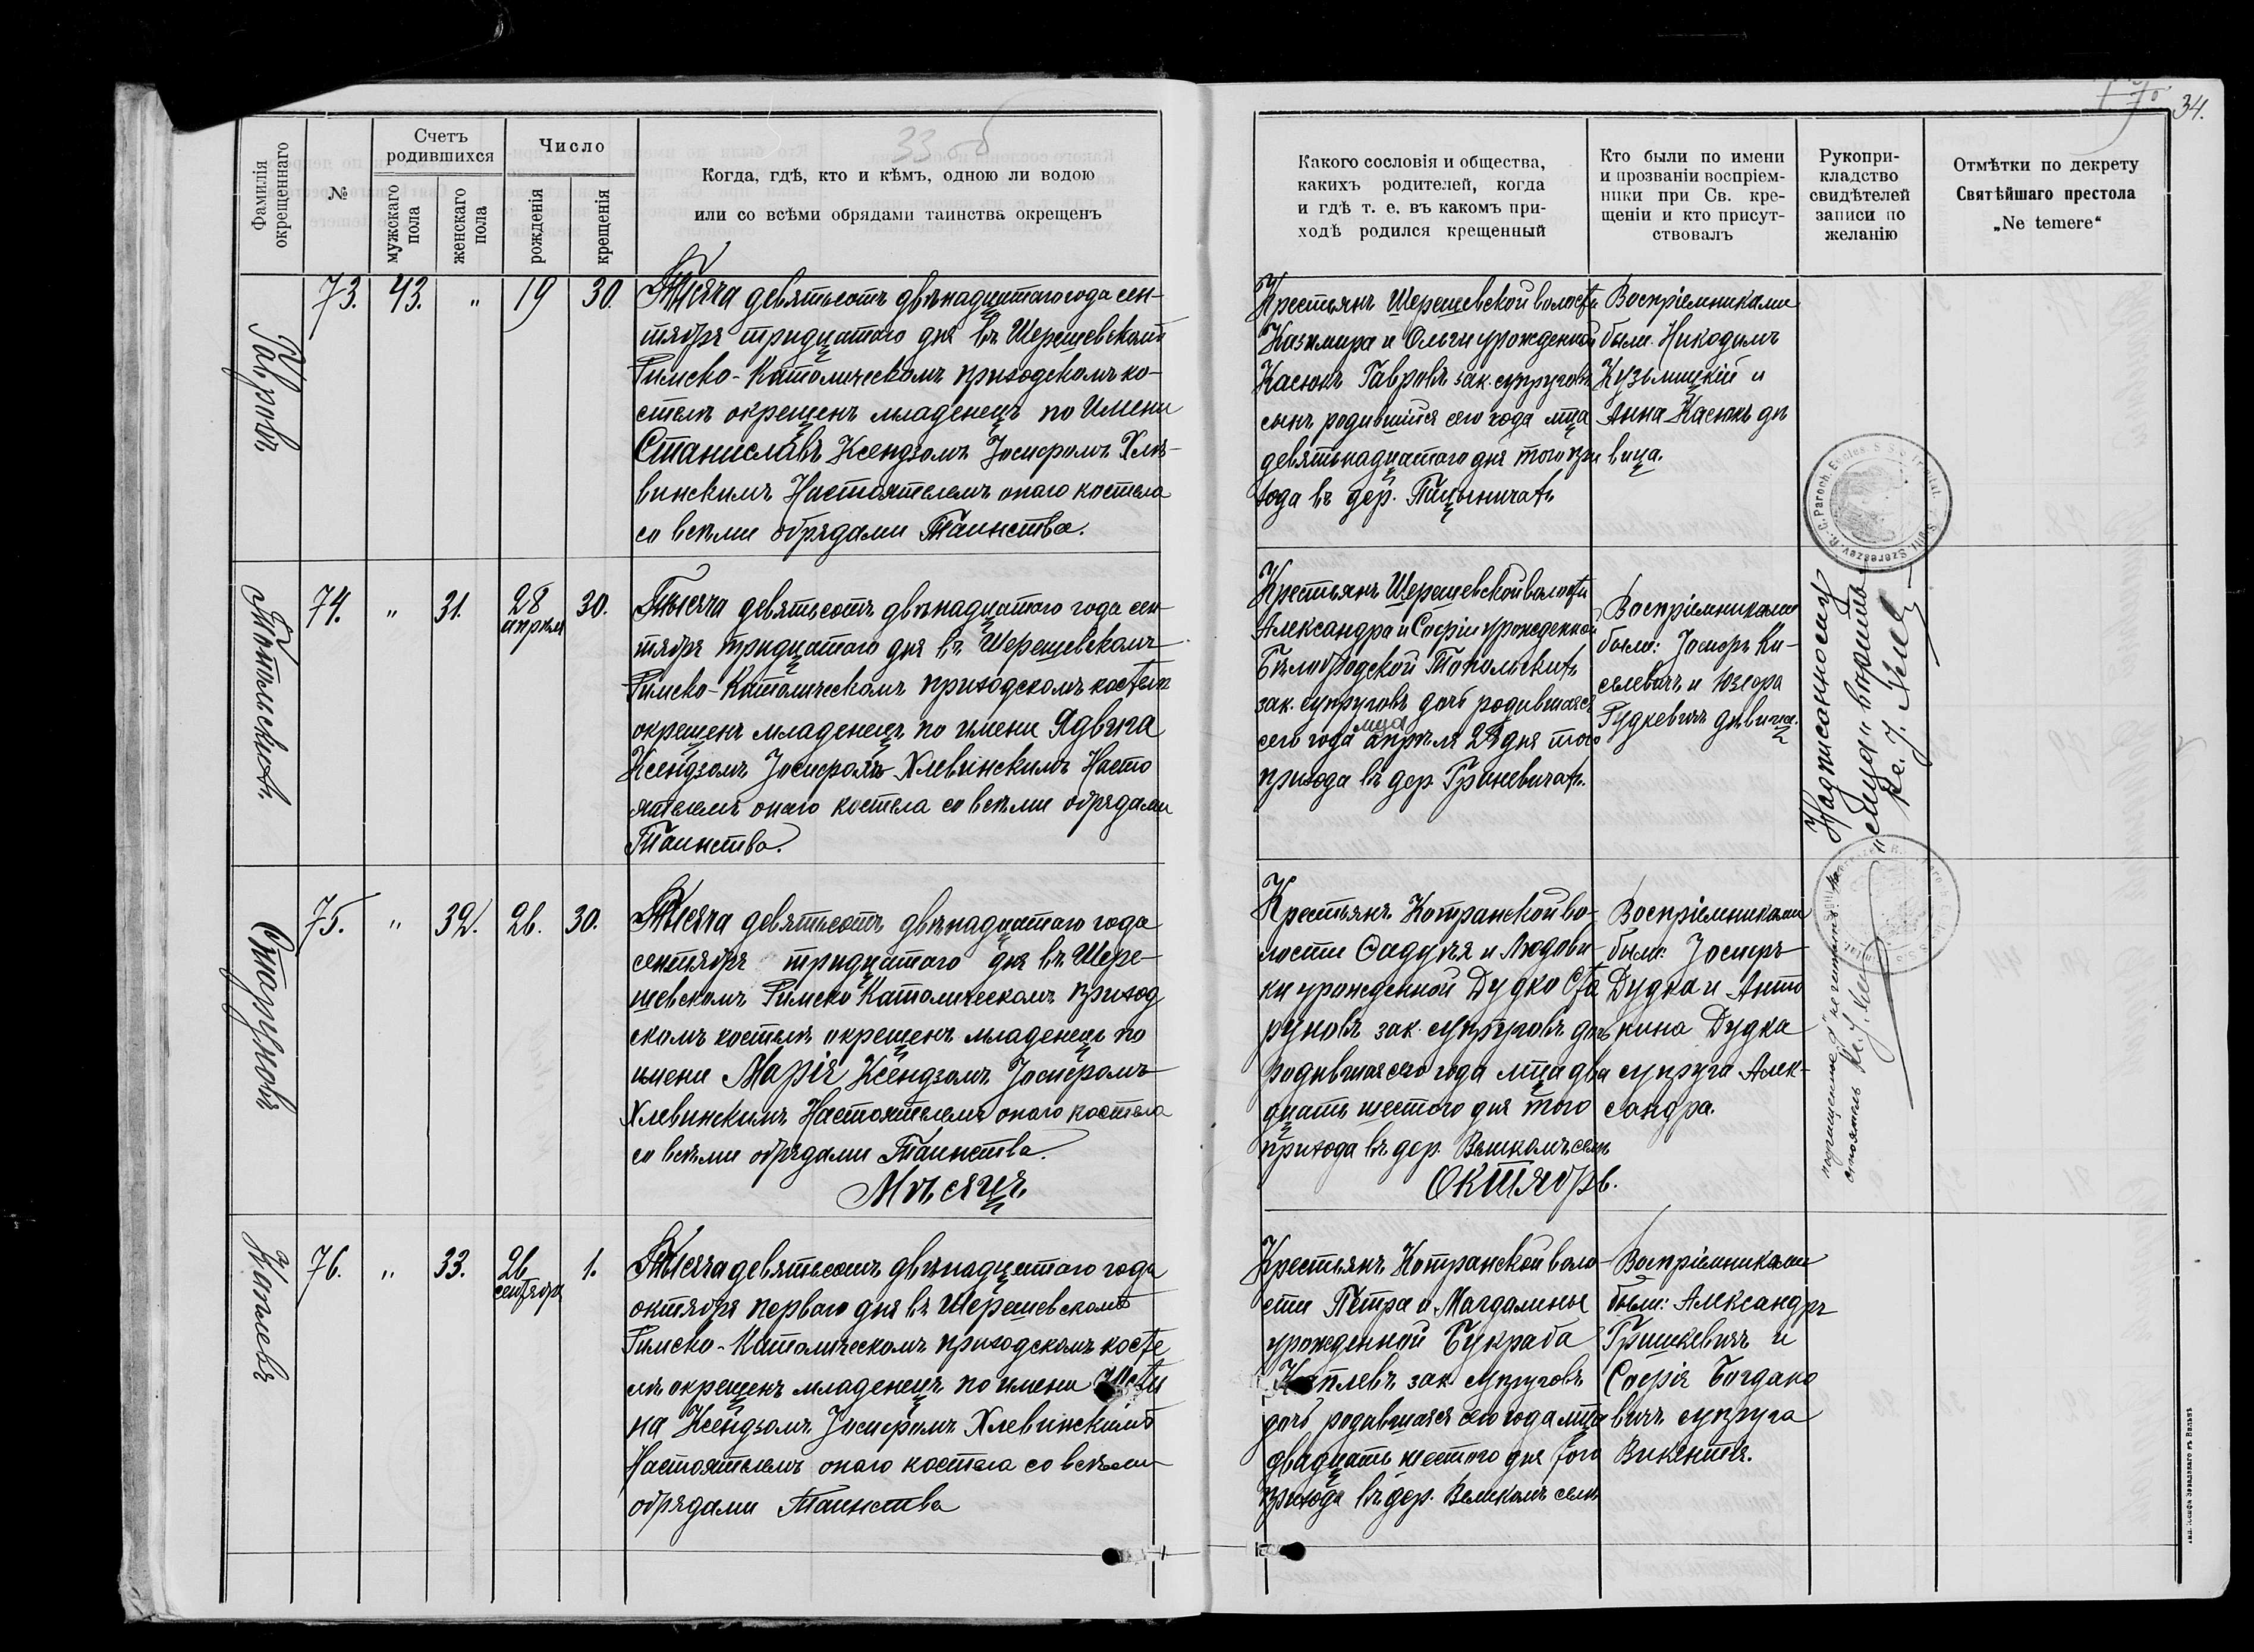 33 об
34.
Фамилія окрещеннаго
№
Счетъ родившихся
мужскаго пола
женскаго пола
Число
рожденія
крещенія
Когда, гдѣ, кто и кѣмъ, одною ли водою
или со всѣми обрядами таинства окрещенъ
Какого сословія и общества,
какихъ родителей, когда
и гдѣ т. е. въ какомъ при-
ходѣ родился крещенный
Кто были по имени
и прозваніи воспріем-
ники при Св. кре-
щеніи и кто присут-
ствовалъ
Рукопри-
кладство
свидѣтелей
записи по
желанію
Отмѣтки по декрету
Святѣйшаго престола
„Ne temere“
Гавровъ
73. 43. " 19 30.
Тысяча девятьсотъ двѣнадцатаго года сен-
тября тридцатаго дня въ Шерешевскомъ
Римско-Католическомъ приходскомъ ко-
стелѣ окрещенъ младенецъ по имени
Станиславъ Ксендзомъ Іосифомъ Хле-
винскимъ Настоятелемъ онаго костела
со всѣми обрядами Таинства.
Крестьянъ Шерешевской волости
Казимира и Ольги урожденной
Касюкъ Гавровъ зак. супруговъ
сынъ родившійся сего года мца
девятнадцатаго дня того при
хода въ дер.
Воспріемниками
были Никодимъ
Кузьмицкій и
Анна Касюкъ дѣ
вица.
Топольскихъ
74. " 31. 28 апрѣля 30.
Тысяча девятьсотъ двѣнадцатаго года сен-
тября тридцатаго дня въ Шерешевскомъ
Римско-Католическомъ приходскомъ костелѣ
окрещенъ младенецъ по имени Ядвига
Ксендзомъ Іосифомъ Хлевинскимъ Насто
ятелемъ онаго костела со всѣми обрядами
Таинства.
Крестьянъ Шерешевской волости
Александра и Софіи урожденной
Бѣлобродской Топольскихъ
зак. супруговъ дочь родившаяся
мца
сего года апрѣля 28 дня того
прихода въ дер. Гриневичахъ.
Воспріемниками
были: Іосифъ Ки-
селевичъ и Юзефа
Рудкевичъ дѣвица.
Надписанному
„мца“ вѣрить
Кс. І.
R. C. Paroch. Eccles. S S S Trinitat. Szereszev.
Старуновъ
75. " 32. 26. 30.
Тысяча девятьсотъ двѣнадцатаго года
сентября тридцатаго дня въ Шере-
шевскомъ Римско Католическомъ приход
скомъ костелѣ окрещенъ младенецъ по
имени Марія Ксендзомъ Іосифомъ
Хлевинскимъ Настоятелемъ онаго костела
со всѣми обрядами Таинства.
Крестьянъ Котранской во-
лости Фаддея и Людови-
ки урожденной Дудко Ста
руновъ зак. супруговъ дочь
родившаяся сего года мца два
дцать шестого дня того
прихода въ дер. Великомъ селѣ
Воспріемниками
были: Іосифъ
Дудка и Анто
нина Дудка
супруга Алек-
сандра.
Мѣсяцъ
Октябрь.
76. " 33. 26 сентября 1.
Тысяча девятьсотъ двѣнадцатаго года
октября перваго дня въ Шерешевскомъ
Римско-Католическомъ приходскомъ косте
лѣ окрещенъ младенецъ по имени
на Ксендзомъ Іосифомъ Хлевинскимъ
Настоятелемъ онаго костела со всѣми
обрядами Таинства
Крестьянъ Котранской воло-
сти Петра и Магдалины
урожденной Букраба
зак. супруговъ
дочь родившаяся сего года мца
двадцать шестого дня того
прихода въ дер. Великомъ селѣ
Воспріемниками
были: Александръ
Гришкевичъ и
Софія Богдано
вичъ супруга
Викентія.